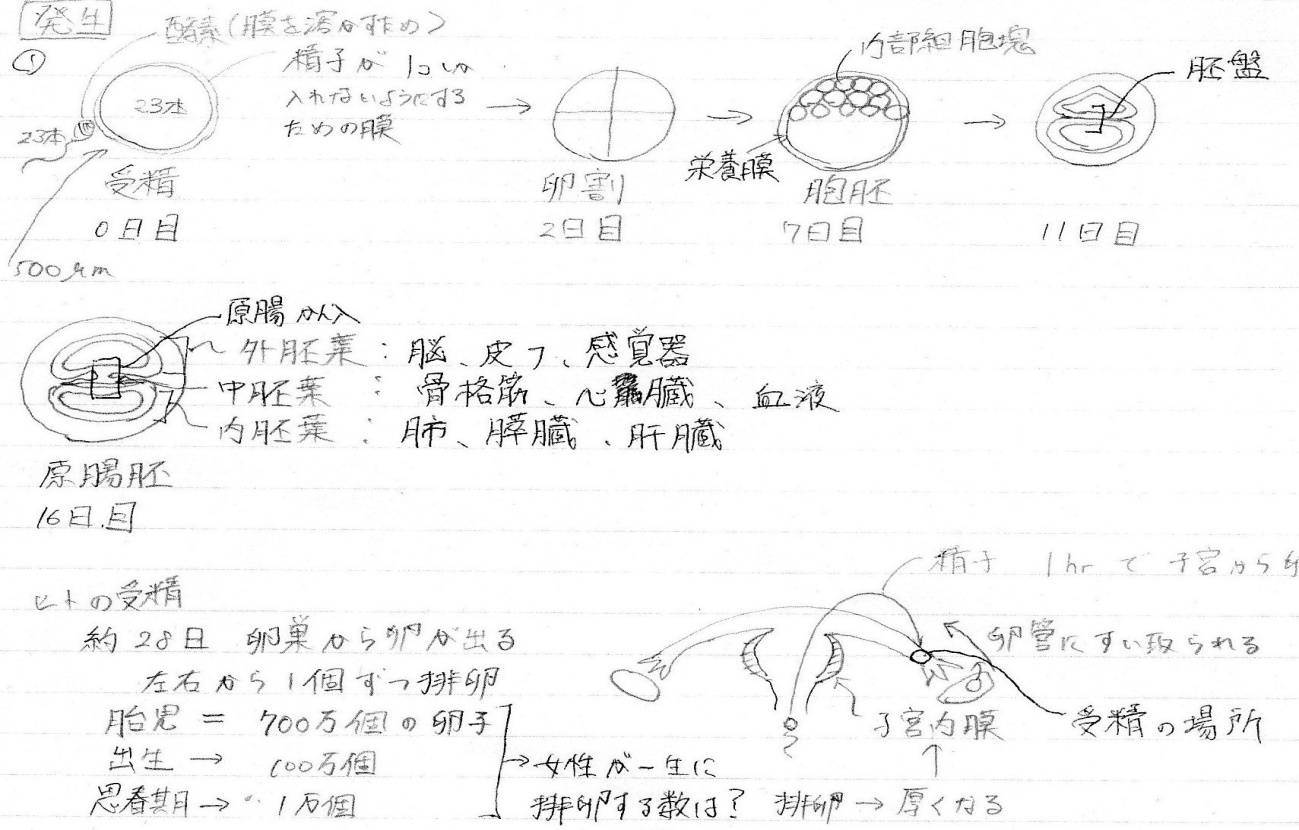 発生
① 酵素(膜を溶かすため)
精子が1コしか
入れないようにする
ための膜
23本
23本
受精
0日目
500μm
卵割
2日目
内部細胞塊
栄養膜
胞胚
7日目
胚盤
11日目
原腸かん入
外胚葉:脳、皮フ、感覚器
中胚葉:骨格筋、心臓、血液
内胚葉:肺、膵臓、肝臓
原腸胚
16日目
ヒトの受精
約28日 卵巣から卵が出る
左右から1個ずつ排卵
胎児 = 700万個の卵子
出生 → 100万個
思春期 → 1万個
→女性が一生に
排卵する数は?
精子 1hrで子宮から
卵管にすい取られる
受精の場所
子宮内膜
↑
排卵 → 厚くなる